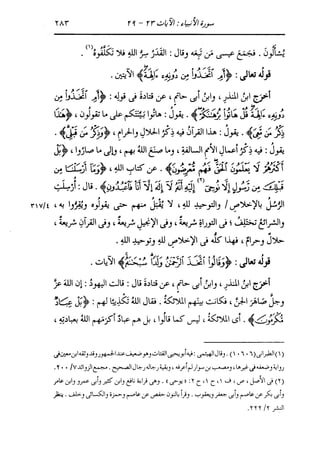 سورة الأنبياء : الآيات ٢٣ - ٢٩
٢٨٣
يُسألون . فجمَع عيسى مَن تَبِعه وقال : القَدَرُ سِرُّ اللهِ فلا تَكلَّفُوه(١) .
قولُه تعالى : ﴿أَمِ ٱتَّخَذُواْ مِن دُونِهِۦٓ ءَالِهَةً﴾ الآيتين .
أخرَج ابنُ المنذرِ ، وابنُ أبى حاتمٍ ، عن قتادةَ فى قولِه : ﴿أَمِ ٱتَّخَذُواْ مِن
دُونِهِۦٓ ءَالِهَةً قُلْ هَاتُواْ بُرْهَانَكُمْ﴾ . يقولُ : هاتوا بيِّنتَكم على ما تقولون ، ﴿هَٰذَا
ذِكْرُ مَن مَّعِىَ﴾ . يقولُ : هذا القرآنُ فيه ذكرُ الحلالِ والحرامِ ، ﴿وَذِكْرُ مَن قَبْلِى﴾ .
يقولُ : فيه ذكرُ أعمالِ الأممِ السالفةِ ، وما صنَع اللهُ بهم ، وإلى ما صاروا ، ﴿بَلْ
أَكْثَرُهُمْ لَا يَعْلَمُونَ ٱلْحَقَّ فَهُم مُّعْرِضُونَ﴾ . عن كتابِ اللهِ ، ﴿وَمَآ أَرْسَلْنَا مِن
قَبْلِكَ مِن رَّسُولٍ إِلَّا نُوحِىٓ(٢) إِلَيْهِ أَنَّهُۥ لَآ إِلَٰهَ إِلَّآ أَنَا۠ فَٱعْبُدُونِ﴾ . قال : أُرسِلَتِ
الرسُلُ بالإخلاصِ / والتوحيدِ للهِ ، لا يُقبلُ منهم حتى يقولُوه ويُقِرُّوا به ،
٣١٧/٤
والشرائعُ تختلِفُ ؛ فى التوراةِ شريعةٌ ، وفى الإنجيلِ شريعةٌ ، وفى القرآنِ شريعةٌ ،
حلالٌ وحرامٌ ، فهذا كلُّه فى الإخلاصِ للهِ وتوحيدِ اللهِ .
قولُه تعالى : ﴿وَقَالُواْ ٱتَّخَذَ ٱلرَّحْمَٰنُ وَلَدًا سُبْحَٰنَهُۥ﴾ الآيات .
أخرَج ابنُ المنذرِ ، وابنُ أبى حاتمٍ ، عن قتادةَ قال : قالت اليهودُ : إن اللهَ عزَّ
وجلَّ صاهَر الجنَّ ، فكانت بينَهم الملائكةُ . فقال اللهُ تكذيبًا لهم : ﴿بَلْ عِبَادٌ
مُّكْرَمُونَ﴾ . أى الملائكةُ ، ليس كما قالوا ، بل هم عبادٌ أكرَمهم اللهُ بعبادتِه ،
(١) الطبرانى (١٠٦٠٦) . وقال الهيثمى : فيه أبو يحيى القتات وهو ضعيف عند الجمهور وقد وثقه ابن معين فى
رواية وضعفه فى غيرها ، ومصعب بن سوار لم أعرفه ، وبقية رجاله رجال الصحيح . مجمع الزوائد ٧/ ٢٠٠.
(٢) فى الأصل ، ص ، ف ١ ، ح ١ ، ح ٢ : « يوحى » . وهى قراءة نافع وابن كثير وأبى عمرو وابن عامر
وأبى بكر عن عاصم وأبى جعفر ويعقوب . وقرأ بالنون حفص عن عاصم وحمزة والكسائى وخلف . ينظر
النشر ٢/ ٢٢٢.